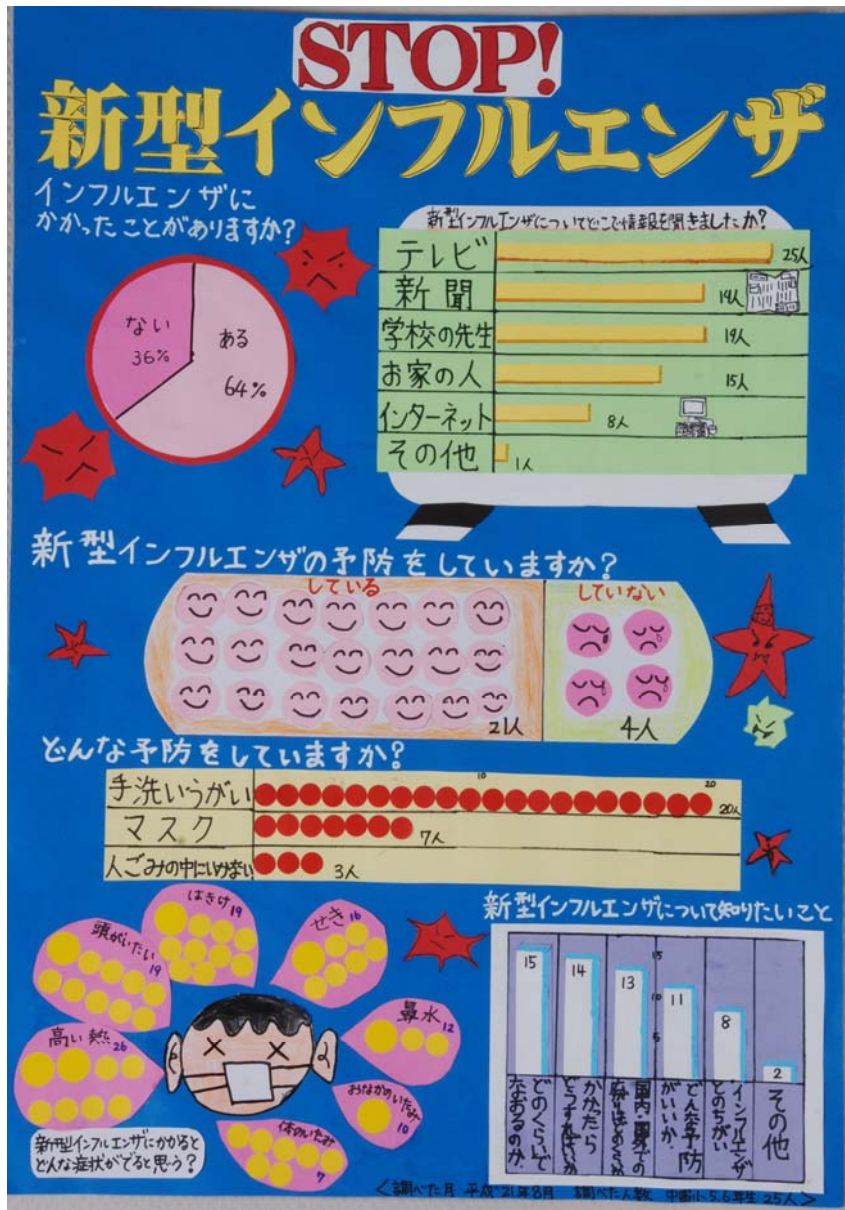 STOP!
新型インフルエンザ
インフルエンザに
かかったことがありますか?
ない
36%
ある
64%
新型インフルエンザについてどこで情報を聞きましたか?
テレビ
25人
新聞
19人
学校の先生
19人
お家の人
15人
インターネット
8人
その他
1人
新型インフルエンザの予防をしていますか?
している
していない
21人
4人
どんな予防をしていますか?
10
20
手洗いうがい
20人
マスク
7人
人ごみの中にいかない
3人
はきけ19
せき16
頭がいたい
19
鼻水
12
高い熱
26
おなかのいたみ
10
体のいたみ
7
新型インフルエンザにかかると
どんな症状がでると思う?
新型インフルエンザについて知りたいこと
15
10
5
15
14
13
11
8
2
どのくらいで
なおるのか。
かかったら
どうすればいいか
国内、国外での
どんな予防
がいいか。
インフルエンザ
とのちがい
その他
<調べた月 平成21年8月 調べた人数 小5.6年生 25人>